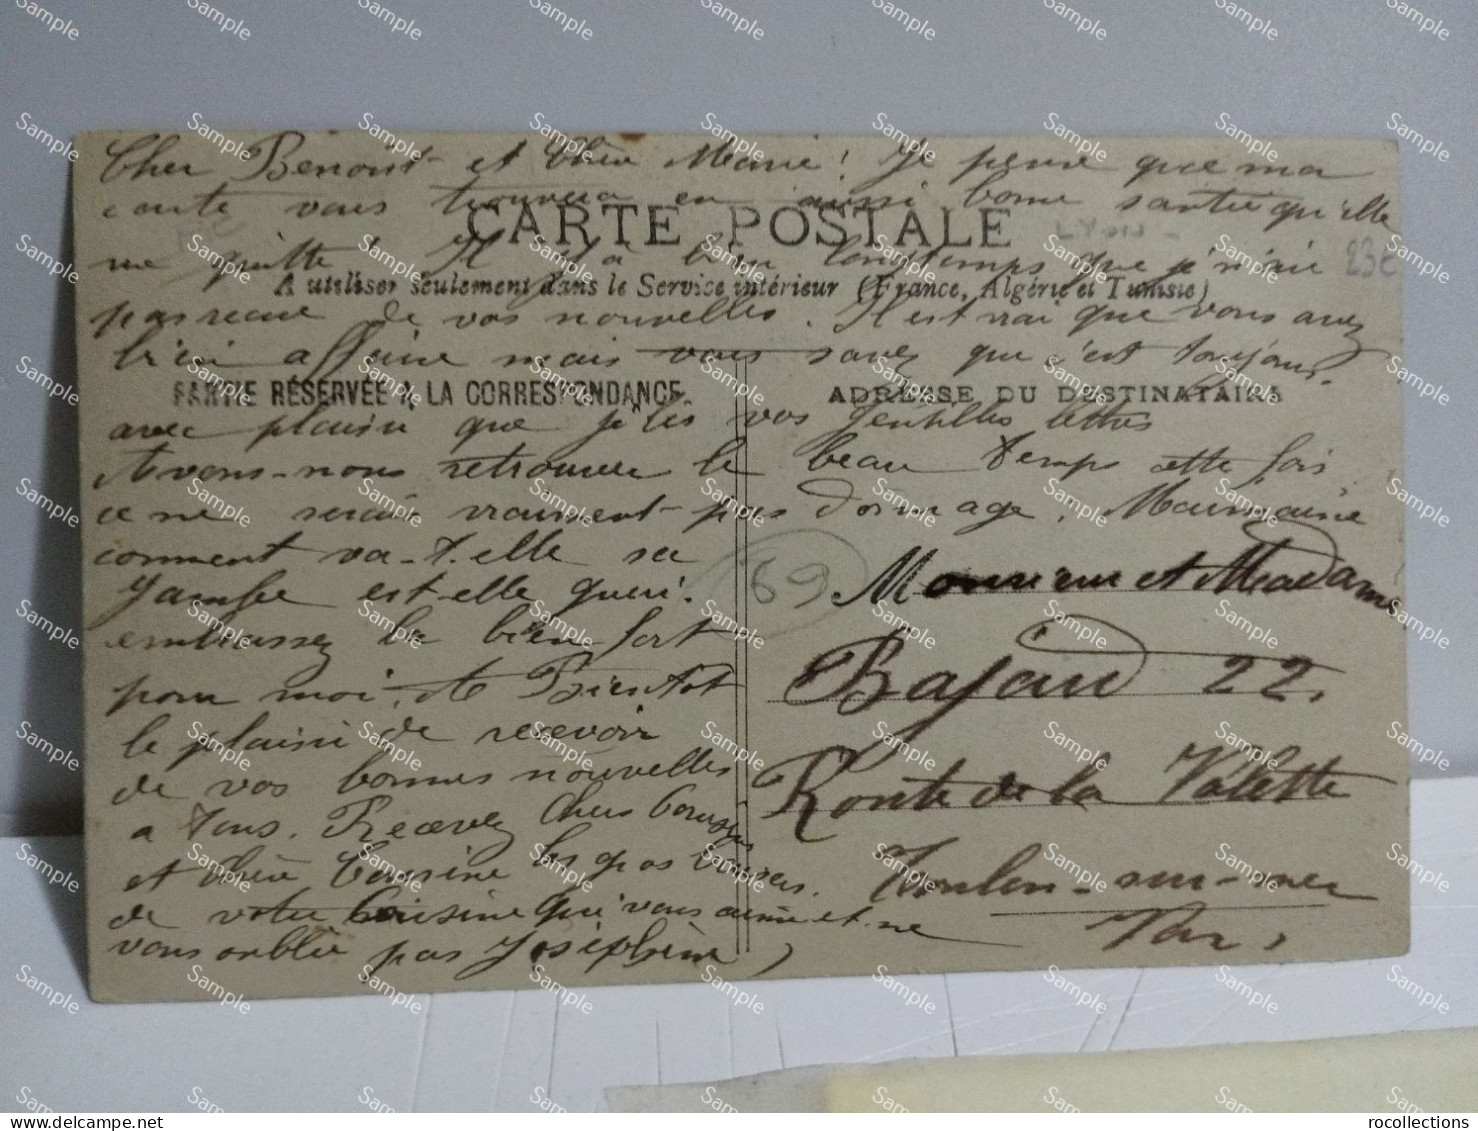 Cher Benoist et Chère Marie! Je pense que ma
carte vous trouvera en aussi bonne santée qu'elle
me quitte. Il y a bien longtemps que je n'aie
CARTE POSTALE
LYON
23€
A utiliser seulement dans le Service intérieur (France, Algérie et Tunisie)
pas recue de vos nouvelles. Il est vrai que vous avez
bien affaire mais vous savez que c'est toujours
PARTIE RÉSERVÉE A LA CORRESPONDANCE
ADRESSE DU DESTINATAIRE
avec plaisir que je lis vos gentilles lettres
Avons-nous retrouver le beau temps cette fois
ce ne serait vraiment pas domage.
comment va-t-elle sa
jambe est-elle gueri.
embrassez la bien fort
pour moi. A Bientot
le plaisir de recevoir
de vos bonnes nouvelles
a tous. Recevez Chers Cousins
et Chère Cousine les gros baisers
de votre Cousine qui vous aime et ne
vous oublie pas Joséphine
69
Monsieur et Madame
Bajaud 22,
Route de la Valette
Toulon-sur-mer
Var,
rocollections